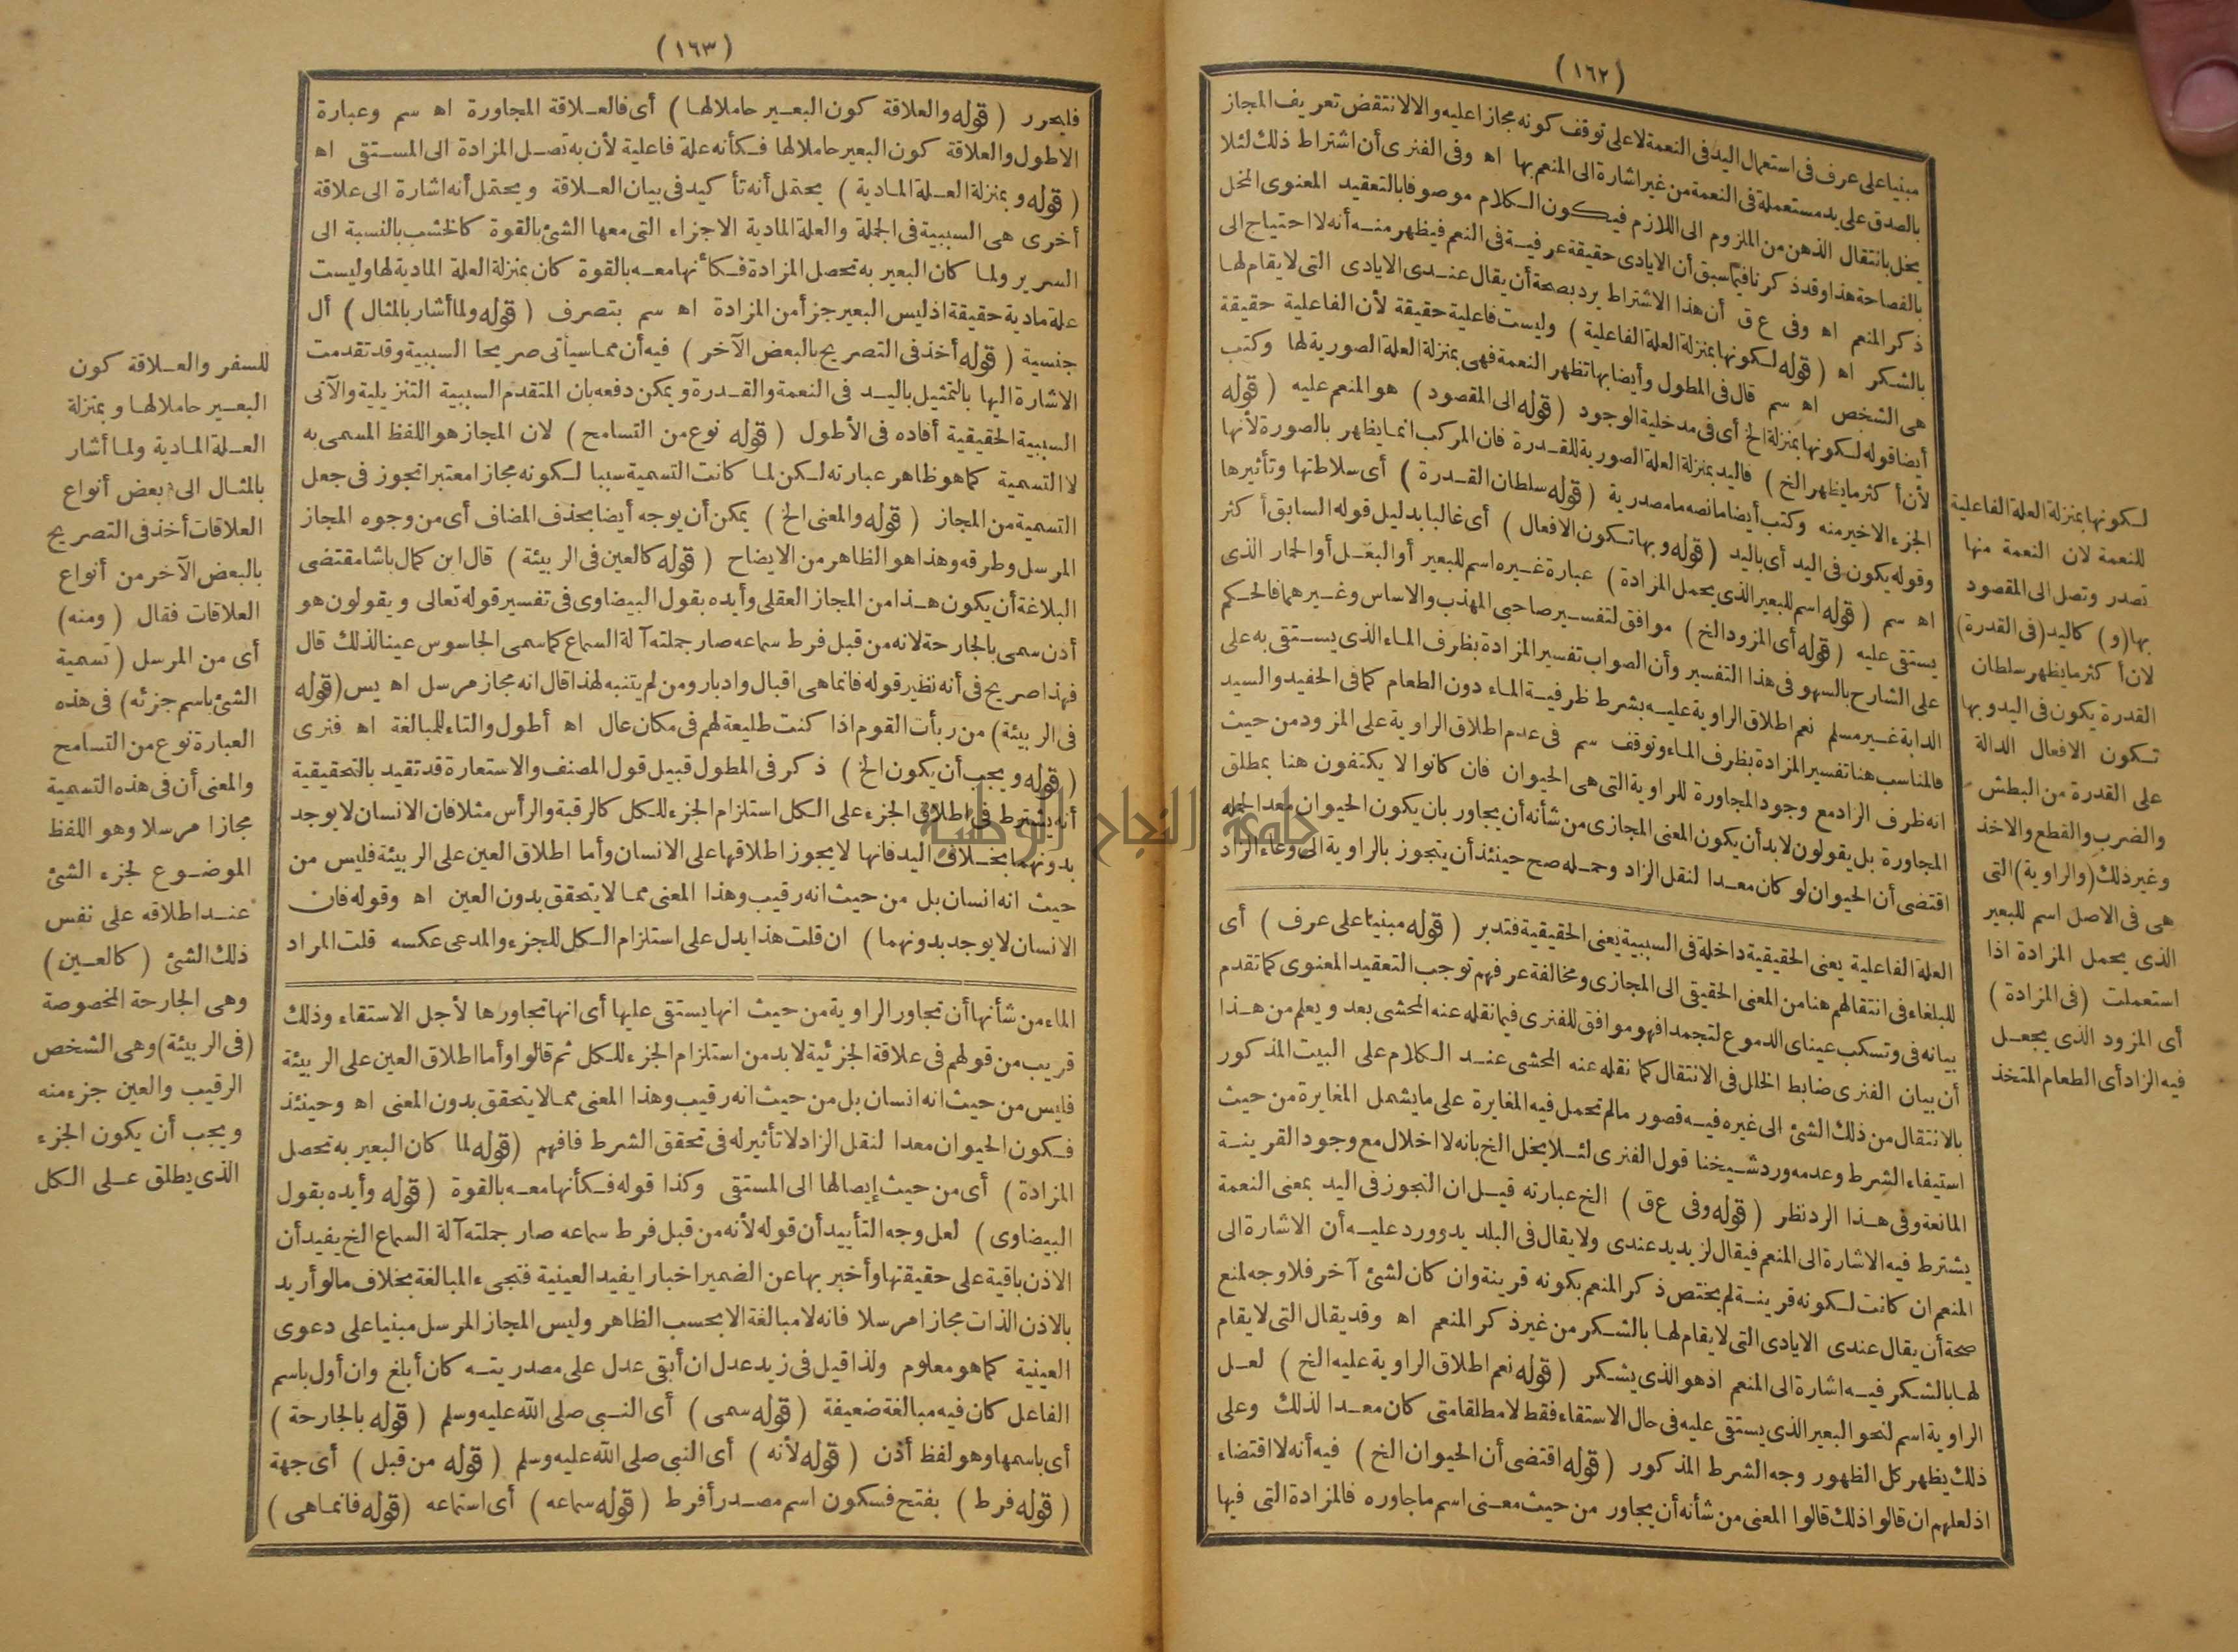 (١٦٢)
مبنيا على عرف فى استعمال اليد فى النعمة لا على توقف كونه مجازا عليه والا لانتقض تعريف المجاز
بالصدق على يد مستعملة فى النعمة من غير اشارة الى المنعم بها اه وفى الفنرى أن اشتراط ذلك لئلا
يخل بانتقال الذهن من الملزوم الى اللازم فيكون الكلام موصوفا بالتعقيد المعنوى المخل
بالفصاحة هذا وقد ذكرنا فيما سبق أن الايادى حقيقة عرفية فى النعم فيظهر منه أنه لا احتياج الى
ذكر المنعم اه وفى ع ق أن هذا الاشتراط يرد بصحة أن يقال عندى الايادى التى لا يقام لها
بالشكر اه (قوله لكونها بمنزلة العلة الفاعلية) وليست فاعلية حقيقة لأن الفاعلية حقيقة
هى الشخص اه سم قال فى المطول وأيضا بها تظهر النعمة فهى بمنزلة العلة الصورية لها وكتب
أيضا قوله لكونها بمنزلة الخ أى فى مدخلية الوجود (قوله الى المقصود) هو المنعم عليه (قوله
لأن أكثر ما يظهر الخ) فاليد بمنزلة العلة الصورية للقدرة فان المركب انما يظهر بالصورة لأنها
الجزء الاخير منه وكتب أيضا مانصه ما مصدرية (قوله سلطان القدرة) أى سلاطتها وتأثيرها
وقوله يكون فى اليد أى باليد (قوله وبها تكون الافعال) أى غالبا بدليل قوله السابق أكثر
اه سم (قوله اسم للبعير الذى يحمل المزادة) عبارة غيره اسم للبعير أو البغل أو الحمار الذى
يستقى عليه (قوله أى المزود الخ) موافق لتفسير صاحبى المهذب والاساس وغيرهما فالحكم
على الشارح بالسهو فى هذا التفسير وأن الصواب تفسير المزادة بظرف الماء الذى يستقى به على
الدابة غير مسلم نعم اطلاق الراوية عليه بشرط ظرفية الماء دون الطعام كما فى الحفيد والسيد
فالمناسب هنا تفسير المزادة بظرف الماء وتوقف سم فى عدم اطلاق الراوية على المزود من حيث
انه ظرف الزاد مع وجود المجاورة للراوية التى هى الحيوان فان كانوا لا يكتفون هنا بمطلق
المجاورة بل يقولون لا بد أن يكون المعنى المجازى من شأنه أن يجاور بان يكون الحيوان معدا لحمله
اقتضى أن الحيوان لو كان معدا لنقل الزاد وحمله صح حينئذ أن يتجوز بالراوية الى وعاء الزاد
العلة الفاعلية يعنى الحقيقية داخلة فى السببية يعنى الحقيقية فتدبر (قوله مبنيا على عرف) أى
للبلغاء فى انتقالهم هنا من المعنى الحقيقى الى المجازى ومخالفة عرفهم توجب التعقيد المعنوى كما تقدم
بيانه فى وتسكب عيناى الدموع لتجمدا فهو موافق للفنرى فيما نقله عنه المحشى بعد ويعلم من هذا
أن بيان الفنرى ضابط الخلل فى الانتقال كما نقله عنه المحشى عند الكلام على البيت المذكور
بالانتقال من ذلك الشئ الى غيره فيه قصور مالم تحمل فيه المغايرة على ما يشمل المغايرة من حيث
استيفاء الشرط وعدمه ورد شيخنا قول الفنرى لئلا يخل الخ بانه لا اخلال مع وجود القرينة
المانعة وفى هذا الرد نظر (قوله وفى ع ق) الخ عبارته قيل ان التجوز فى اليد بمعنى النعمة
يشترط فيه الاشارة الى المنعم فيقال لزيد يد عندى ولا يقال فى البلد يد وورد عليه أن الاشارة الى
المنعم ان كانت لكونه قرينة لم يختص ذكر المنعم بكونه قرينة وان كان لشئ آخر فلا وجه لمنع
صحة أن يقال عندى الايادى التى لا يقام لها بالشكر من غير ذكر المنعم اه وقد يقال التى لا يقام
لها بالشكر فيه اشارة الى المنعم اذ هو الذى يشكر (قوله نعم اطلاق الراوية عليه الخ) لعل
الراوية اسم لنحو البعير الذى يستقى عليه فى حال الاستقاء فقط لا مطلقا متى كان معدا لذلك وعلى
ذلك يظهر كل الظهور وجه الشرط المذكور (قوله اقتضى أن الحيوان الخ) فيه أنه لا اقتضاء
اذ لعلهم ان قالوا ذلك قالوا المعنى من شأنه أن يجاور من حيث معنى اسم ما جاوره فالمزادة التى فيها
لكونها بمنزلة العلة الفاعلية
للنعمة لان النعمة منها
تصدر وتصل الى المقصود
بها (و) كاليد (فى القدرة)
لان أكثر ما يظهر سلطان
القدرة يكون فى اليد وبها
تكون الافعال الدالة
على القدرة من البطش
والضرب والقطع والاخذ
وغير ذلك (والراوية) التى
هى فى الاصل اسم للبعير
الذى يحمل المزادة اذا
استعملت (فى المزادة)
أى المزود الذى يجعل
فيه الزاد أى الطعام المتخذ
(١٦٣)
فليحرر (قوله والعلاقة كون البعير حاملا لها) أى فالعلاقة المجاورة اه سم وعبارة
الاطول والعلاقة كون البعير حاملا لها فكأنه علة فاعلية لأن به تصل المزادة الى المستقى اه
(قوله وبمنزلة العلة المادية) يحتمل أنه تأكيد فى بيان العلاقة ويحتمل أنه اشارة الى علاقة
أخرى هى السببية فى الجملة والعلة المادية الاجزاء التى معها الشئ بالقوة كالخشب بالنسبة الى
السرير ولما كان البعير به تحصل المزادة فكأنها معه بالقوة كان بمنزلة العلة المادية لها وليست
علة مادية حقيقة اذ ليس البعير جزأ من المزادة اه سم بتصرف (قوله ولما أشار بالمثال) أل
جنسية (قوله أخذ فى التصريح بالبعض الآخر) فيه أن مما سيأتى صريحا السببية وقد تقدمت
الاشارة اليها بالتمثيل باليد فى النعمة والقدرة ويمكن دفعه بان المتقدم السببية التنزيلية والآتى
السببية الحقيقية أفاده فى الأطول (قوله نوع من التسامح) لان المجاز هو اللفظ المسمى به
لا التسمية كما هو ظاهر عبارته لكن لما كانت التسمية سببا لكونه مجازا معتبرا تجوز فى جعل
التسمية من المجاز (قوله والمعنى الخ) يمكن أن يوجه أيضا بحذف المضاف أى من وجوه المجاز
المرسل وطرقه وهذا هو الظاهر من الايضاح (قوله كالعين فى الربيئة) قال ابن كمال باشا مقتضى
البلاغة أن يكون هذا من المجاز العقلى وأيده بقول البيضاوى فى تفسير قوله تعالى ويقولون هو
أذن سمى بالجارحة لانه من قبل فرط سماعه صار جملته آلة السماع كما سمى الجاسوس عينا لذلك قال
فهذا صريح فى أنه نظير قوله فانما هى اقبال وادبار ومن لم يتنبه لهذا قال انه مجاز مرسل اه يس (قوله
فى الربيئة) من ربأت القوم اذا كنت طليعة لهم فى مكان عال اه أطول والتاء للمبالغة اه فنرى
(قوله ويجب أن يكون الخ) ذكر فى المطول قبيل قول المصنف والاستعارة قد تقيد بالتحقيقية
أنه يشترط فى اطلاق الجزء على الكل استلزام الجزء للكل كالرقبة والرأس مثلا فان الانسان لا يوجد
بدونهما بخلاف اليد فانها لا يجوز اطلاقها على الانسان وأما اطلاق العين على الربيئة فليس من
حيث انه انسان بل من حيث انه رقيب وهذا المعنى مما لا يتحقق بدون العين اه وقوله فان
الانسان لا يوجد بدونهما) ان قلت هذا يدل على استلزام الكل للجزء والمدعى عكسه قلت المراد
الماء من شأنها أن تجاور الراوية من حيث انها يستقى عليها أى انها تجاورها لأجل الاستقاء وذلك
قريب من قولهم فى علاقة الجزئية لا بد من استلزام الجزء للكل ثم قالوا وأما اطلاق العين على الربيئة
فليس من حيث انه انسان بل من حيث انه رقيب وهذا المعنى مما لا يتحقق بدون المعنى اه وحينئذ
فكون الحيوان معدا لنقل الزاد لا تأثير له فى تحقق الشرط فافهم (قوله لما كان البعير به تحصل
المزادة) أى من حيث إيصالها الى المستقى وكذا قوله فكأنها معه بالقوة (قوله وأيده بقول
البيضاوى) لعل وجه التأييد أن قوله لأنه من قبل فرط سماعه صار جملته آلة السماع الخ يفيد أن
الاذن باقية على حقيقتها وأخبر بها عن الضمير اخبارا يفيد العينية فتجىء المبالغة بخلاف مالو أريد
بالاذن الذات مجازا مرسلا فانه لا مبالغة الا بحسب الظاهر وليس المجاز المرسل مبنيا على دعوى
العينية كما هو معلوم ولذا قيل فى زيد عدل ان أبقى عدل على مصدريته كان أبلغ وان أول باسم
الفاعل كان فيه مبالغة ضعيفة (قوله سمى) أى النبى صلى الله عليه وسلم (قوله بالجارحة)
أى باسمها وهو لفظ أذن (قوله لأنه) أى النبى صلى الله عليه وسلم (قوله من قبل) أى جهة
(قوله فرط) بفتح فسكون اسم مصدر أفرط (قوله سماعه) أى استماعه (قوله فانما هى)
للسفر والعلاقة كون
البعير حاملا لها وبمنزلة
العلة المادية ولما أشار
بالمثال الى بعض أنواع
العلاقات أخذ فى التصريح
بالبعض الآخر من أنواع
العلاقات فقال (ومنه)
أى من المرسل (تسمية
الشئ باسم جزئه) فى هذه
العبارة نوع من التسامح
والمعنى أن فى هذه التسمية
مجازا مرسلا وهو اللفظ
الموضوع لجزء الشئ
عند اطلاقه على نفس
ذلك الشئ (كالعين)
وهى الجارحة المخصوصة
(فى الربيئة) وهى الشخص
الرقيب والعين جزء منه
ويجب أن يكون الجزء
الذى يطلق على الكل
جامعة النجاح الوطنية